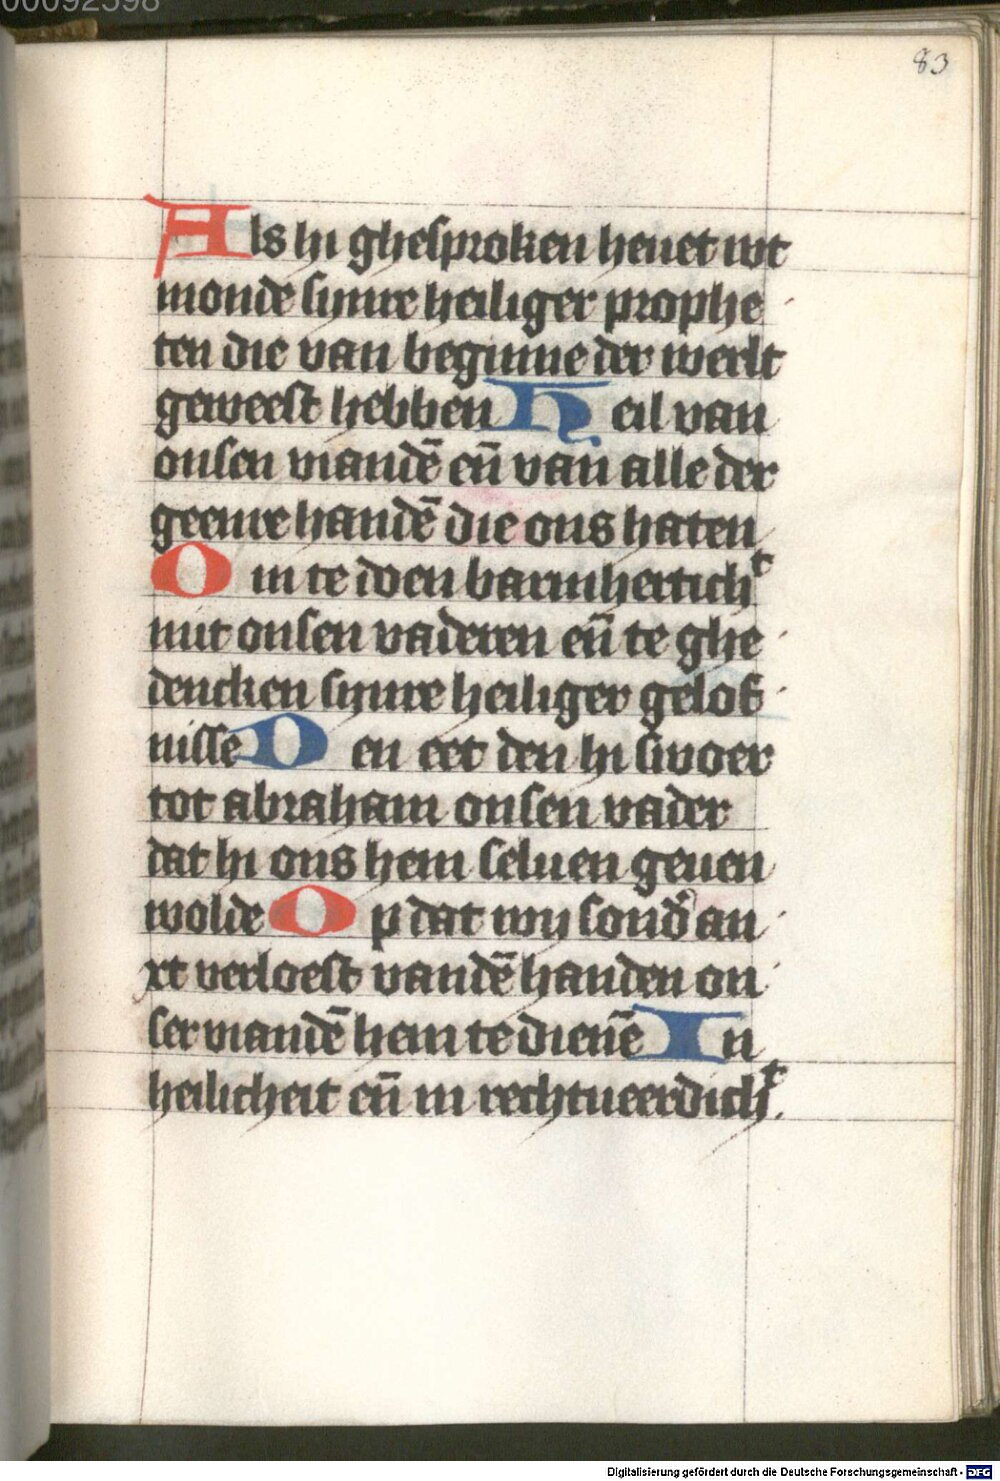 00092598
83
Als hi ghesproken heuet wt
monde synre heiliger prophe
ten die van beginne der werlt
geweest hebben Heil van
onsen viandē eñ van alle der
geenre handē die ons haten
Om te doen barmhertichᵗ
mit onsen vaderen eñ te ghe
dencken synre heiliger gelof
nisse Den eet den hi swoer
tot abraham onsen vader
dat hi ons hem seluen geuen
wolde Op dat wy sond̕ an
xt verloest vandē handen on
ser viandē hem te dienē In
heilicheit eñ in rechtueerdichᵗ.
Digitalisierung gefördert durch die Deutsche Forschungsgemeinschaft - DFG